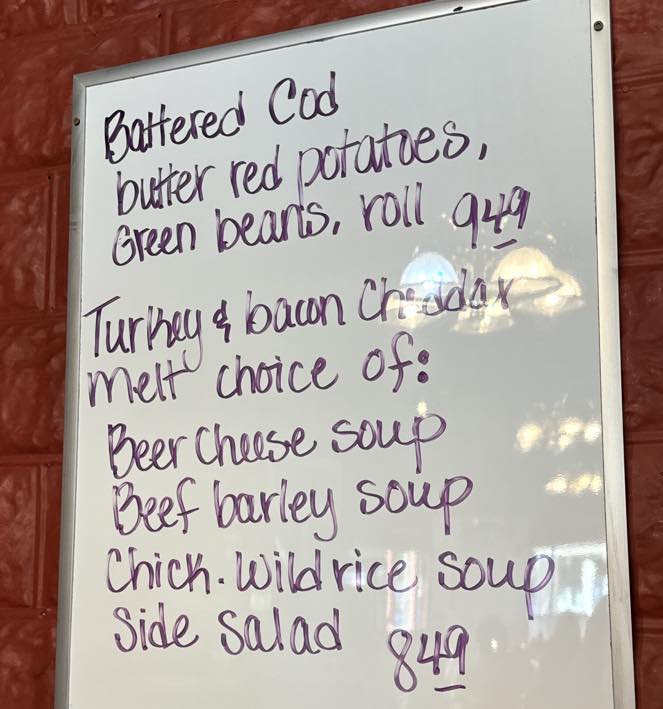 Battered Cod
butter red potatoes,
Green beans, roll 949
Turkey & bacon Cheddar
melt choice of:
Beer Cheese soup
Beef barley soup
Chick. Wild rice soup
Side Salad 849